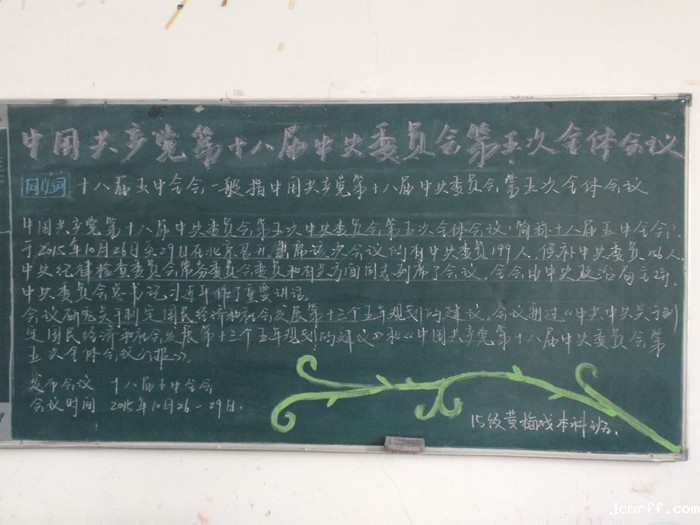 中国共产党第十八届中央委员会第五次全体会议
同义词 十八届五中全会一般指中国共产党第十八届中央委员会第五次全体会议
中国共产党第十八届中央委员会第五次中央委员会第五次全体会议,简称十八届五中全会,
于2015年10月26日至29日在北京召开。出席这次会议的有中央委员199人,候补中央委员156人,
中央纪律检查委员会常务委员会委员和有关方面同志列席了会议。全会由中央政治局主持,
中央委员会总书记习近平作了重要讲话。
会议研究关于制定国民经济和社会发展第十三个五年规划的建议。会议通过《中共中央关于制
定国民经济和社会发展第十三个五年规划的建议》和《中国共产党第十八届中央委员会第
五次全体会议公报》。
发布会议 十八届五中全会
会议时间 2015年10月26-29日.
15级黄梅戏本科班.
jcnrff.com